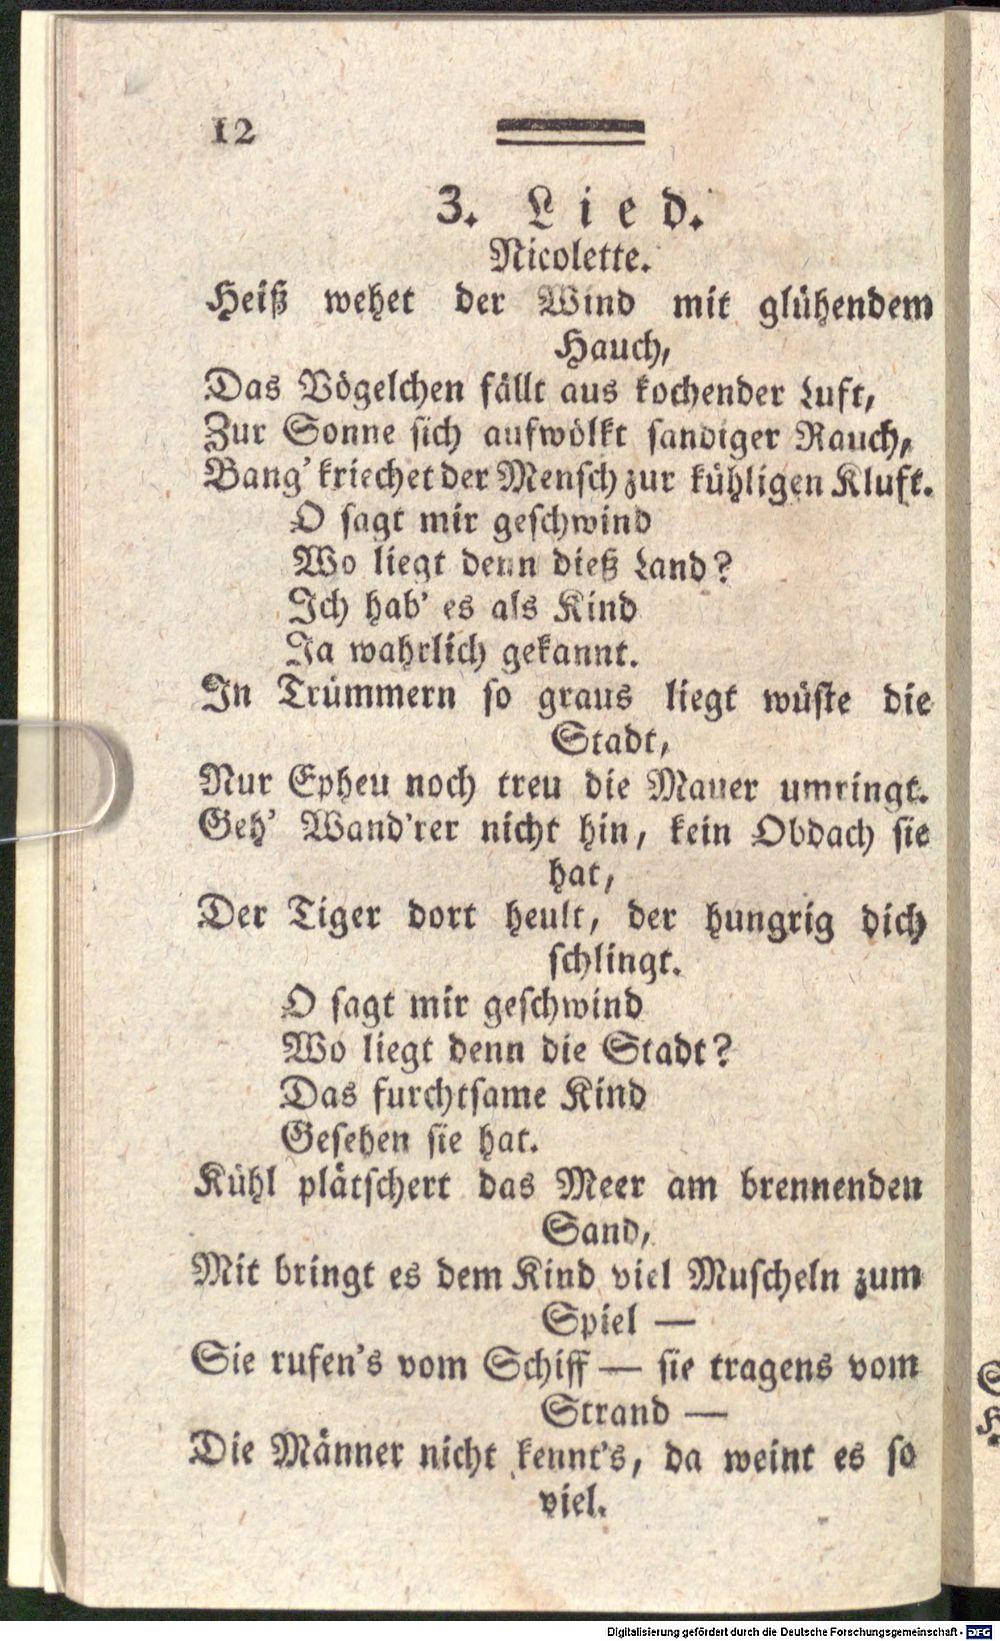 12
3. Lied.
Nicolette.
Heiß wehet der Wind mit glühendem
Hauch,
Das Vögelchen fällt aus kochender Luft,
Zur Sonne sich aufwölkt sandiger Rauch,
Bang' kriechet der Mensch zur kühligen Kluft.
O sagt mir geschwind
Wo liegt denn dieß Land?
Ich hab' es als Kind
Ja wahrlich gekannt.
In Trümmern so graus liegt wüste die
Stadt,
Nur Epheu noch treu die Mauer umringt.
Geh' Wand'rer nicht hin, kein Obdach sie
hat,
Der Tiger dort heult, der hungrig dich
schlingt.
O sagt mir geschwind
Wo liegt denn die Stadt?
Das furchtsame Kind
Gesehen sie hat.
Kühl plätschert das Meer am brennenden
Sand,
Mit bringt es dem Kind viel Muscheln zum
Spiel —
Sie rufen's vom Schiff — sie tragens vom
Strand —
Die Männer nicht kennt's, da weint es so
viel.
Digitalisierung gefördert durch die Deutsche Forschungsgemeinschaft - DFG